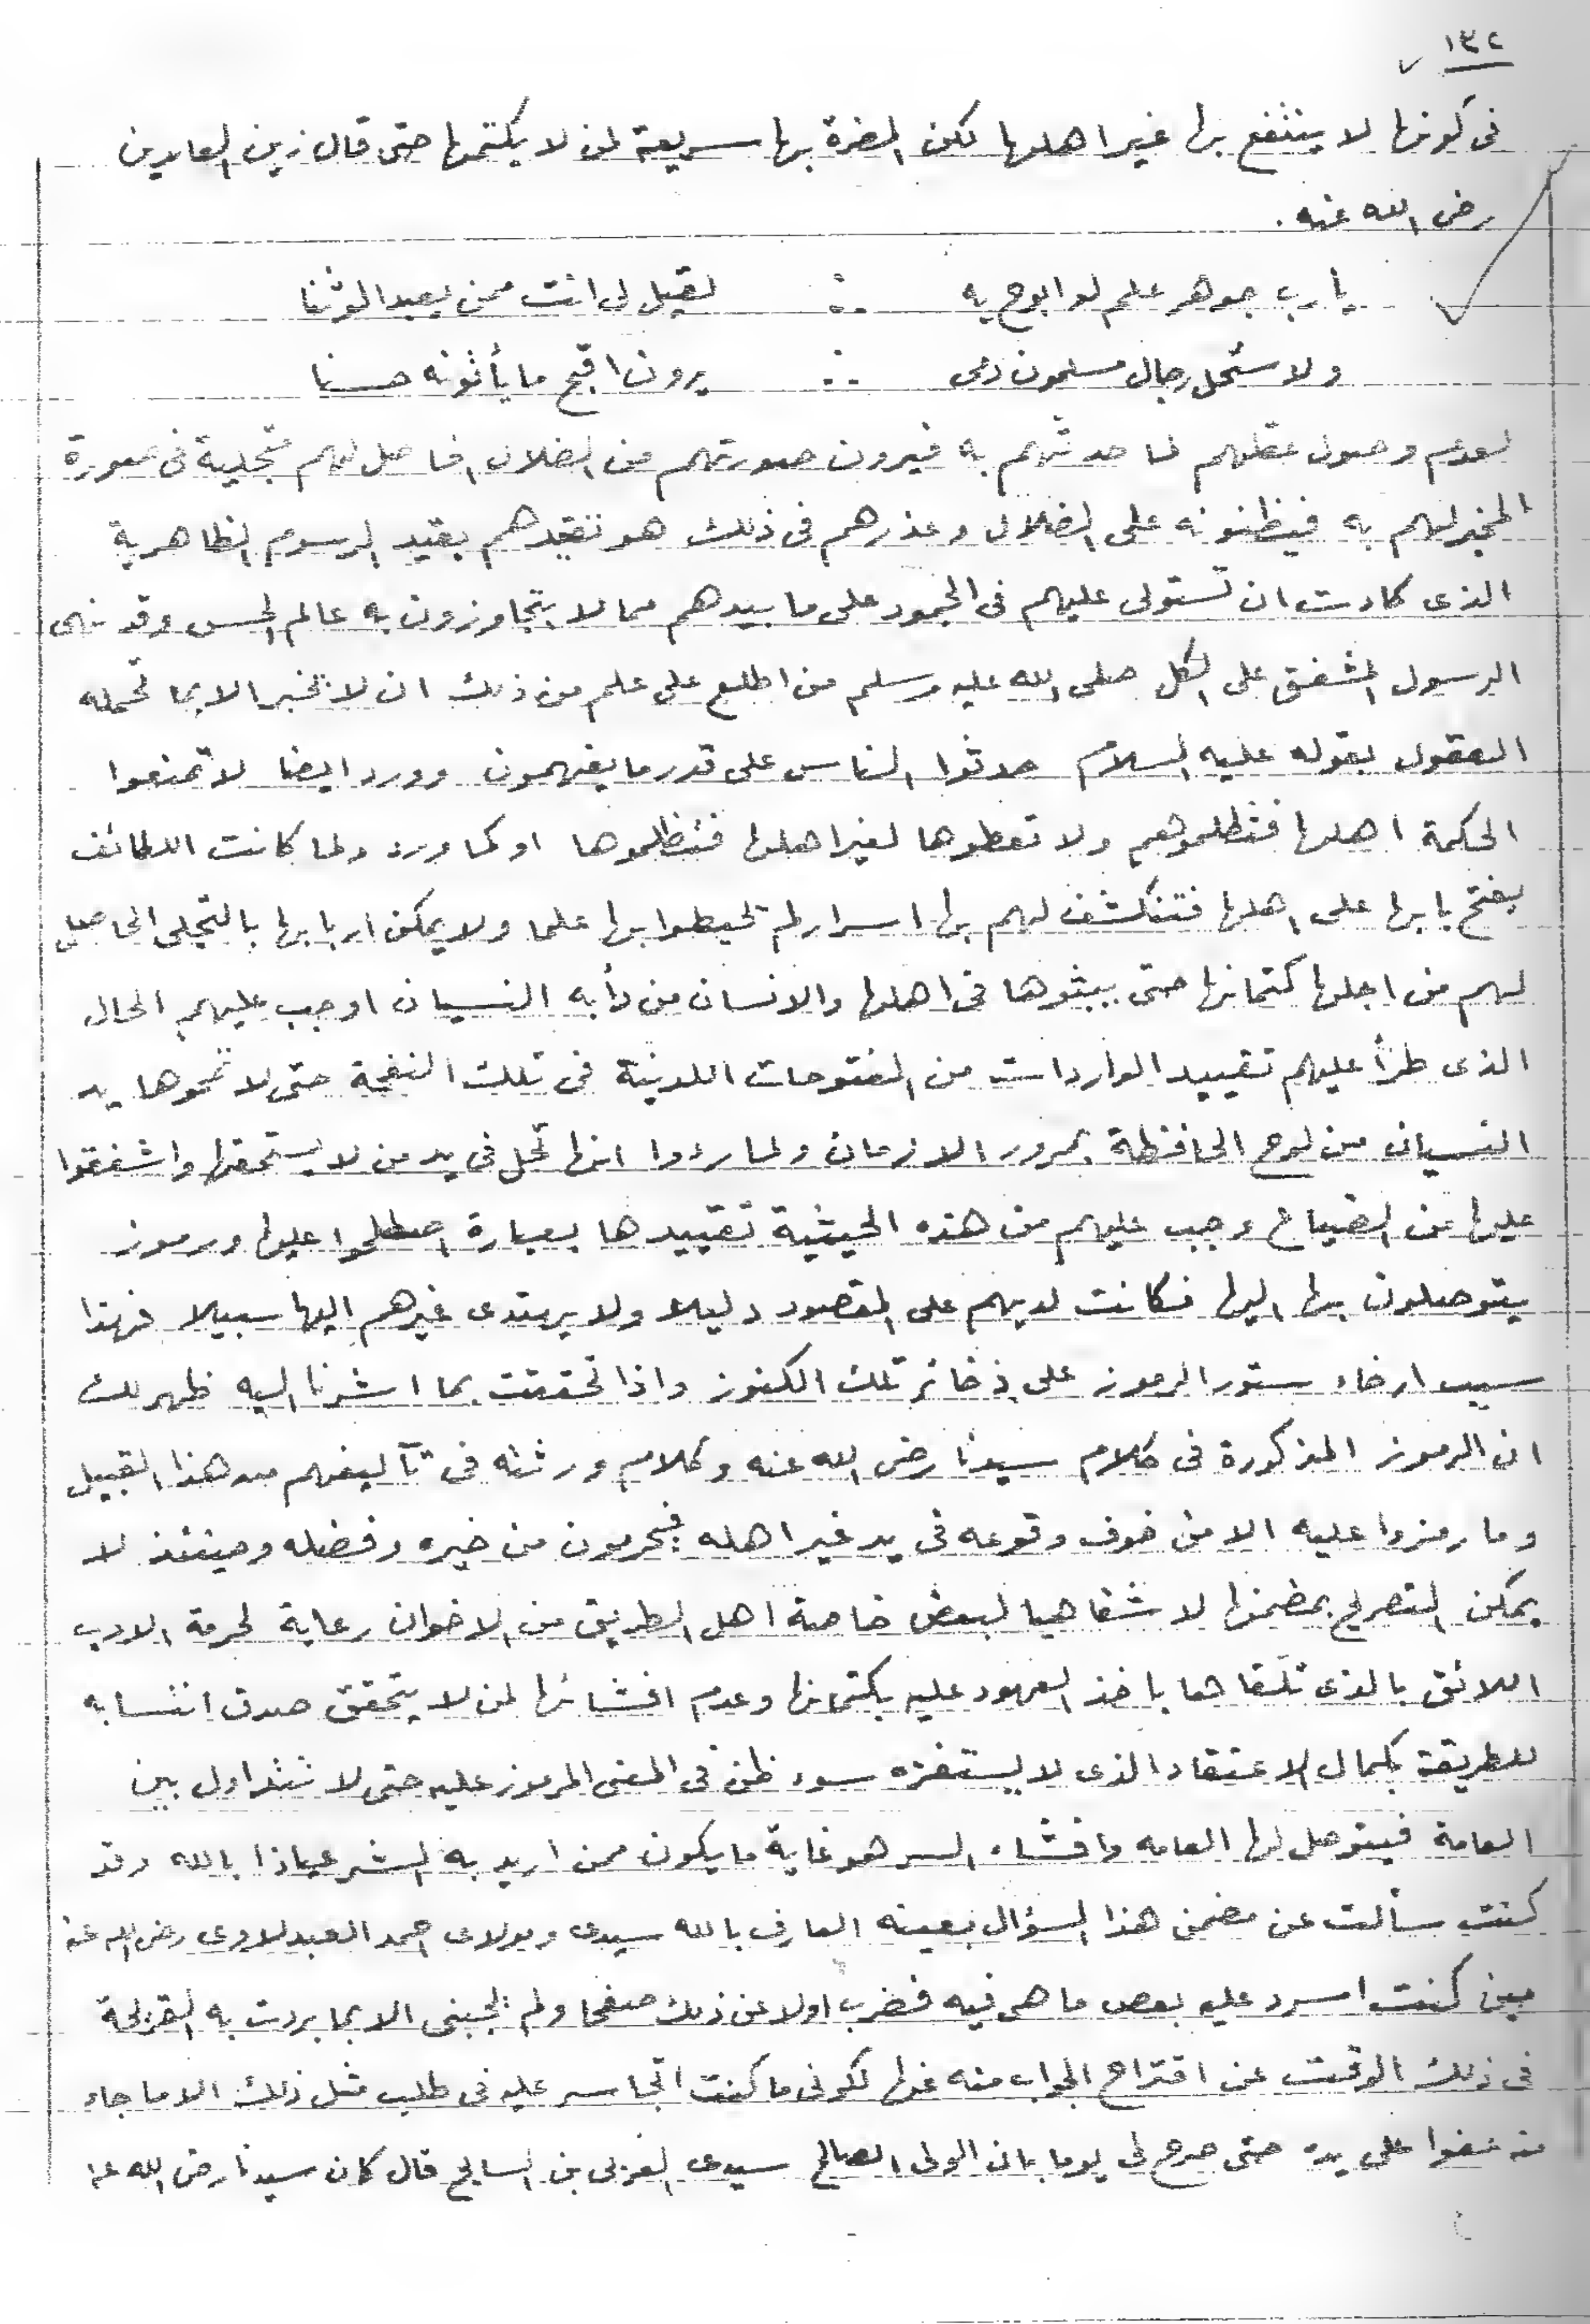 ١٣٢
فى كونها لا ينتفع بها غير اهلها لكن المضرة بها سريعة لمن لا يكتمها حتى قال زين العابدين
رضى الله عنه .
يا رب جوهر علم لو ابوح به ∴ لقيل لى انت ممن يعبد الوثنا
ولا ستحل رجال مسلمون دمى ∴ يرون اقبح ما يأتونه حسنا
لعدم وصول عقلهم لما حدثهم به فيرون صورتهم من الضلال الحاصل لهم متجلية فى صورة
المخبر لهم به فيظنونه على الضلال وعذرهم فى ذلك هو تقيدهم بقيد الرسوم الظاهرية
الذى كادت ان تستولى عليهم فى الجمود على ما بيدهم مما لا يتجاوزون به عالم الحس وقد نهى
الرسول المشفق على الكل صلى الله عليه وسلم من اطلع على علم من ذلك ان لا يخبر الا بما تحمله
العقول بقوله عليه السلام حدثوا الناس على قدر ما يفهمون وورد ايضا لا تمنعوا
الحكمة اهلها فتظلموهم ولا تعطوها لغير اهلها فتظلموها او كما ورد ولما كانت اللطائف
يفتح بابها على اهلها فتنكشف لهم بها اسرار لم يحيطوا بها علما ولا يمكن اربابها بالتجلى الحاصل
لهم من اجلها كتمانها حتى يبثوها فى اهلها والانسان من دأبه النسيان اوجب عليهم الحال
الذى طرأ عليهم تقييد الواردات من الفتوحات اللدنية فى تلك النفحة حتى لا تمحوها يد
النسيان من لوح الحافظة بمرور الازمان ولما رءوا انها تحل فى يد من لا يستحقها واشفقوا
عليها من الضياع وجب عليهم من هذه الحيثية تقييدها بعبارة اصطلحوا عليها ورموز
يتوصلون بها اليها فكانت لديهم على المقصود دليلا ولا يهتدى غيرهم اليها سبيلا فهذا
سبب ارخاء ستور الرموز على ذخائر تلك الكنوز واذا تحققت بما اشرنا اليه ظهر لك
ان الرموز المذكورة فى كلام سيدنا رضى الله عنه وكلام ورثته فى تآليفهم من هذا القبيل
وما رمزوا عليه الا من خوف وقوعه فى يد غير اهله فيحرمون من خيره وفضله وحينئذ لا
يمكن التصريح بمضمنها لا شفاهيا لبعض خاصة اهل الطريق من الاخوان رعاية لحرمة الادب
اللائق بالذى تلقاها باخذ العهود عليه بكتمانها وعدم افشائها لمن لا يتحقق صدق انتسابه
للطريقة بكمال الاعتقاد الذى لا يستفزه سوء ظن فى المعنى المرموز عليه حتى لا تتداول بين
العامة فيتوصل لها العامه وافشاء السر هو غاية ما يكون ممن اريد به الشر عياذا بالله وقد
كنت سألت عن مضمن هذا السؤال بعينه العارف بالله سيدى ومولاى احمد العبدلاوى رضى الله عنه
حين كنت اسرد عليه بعض ما هى فيه فضرب اولا عن ذلك صفحا ولم يجبنى الا بما بردت به القريحة
فى ذلك الوقت عن اقتراح الجواب منه عنها لكونى ما كنت اتجاسر عليه فى طلب مثل ذلك الا ما جاء
منه عفوا على يده حتى صرح لى يوما بان الولى الصالح سيدى العربى بن السايح قال كان سيدنا رضى الله عنه